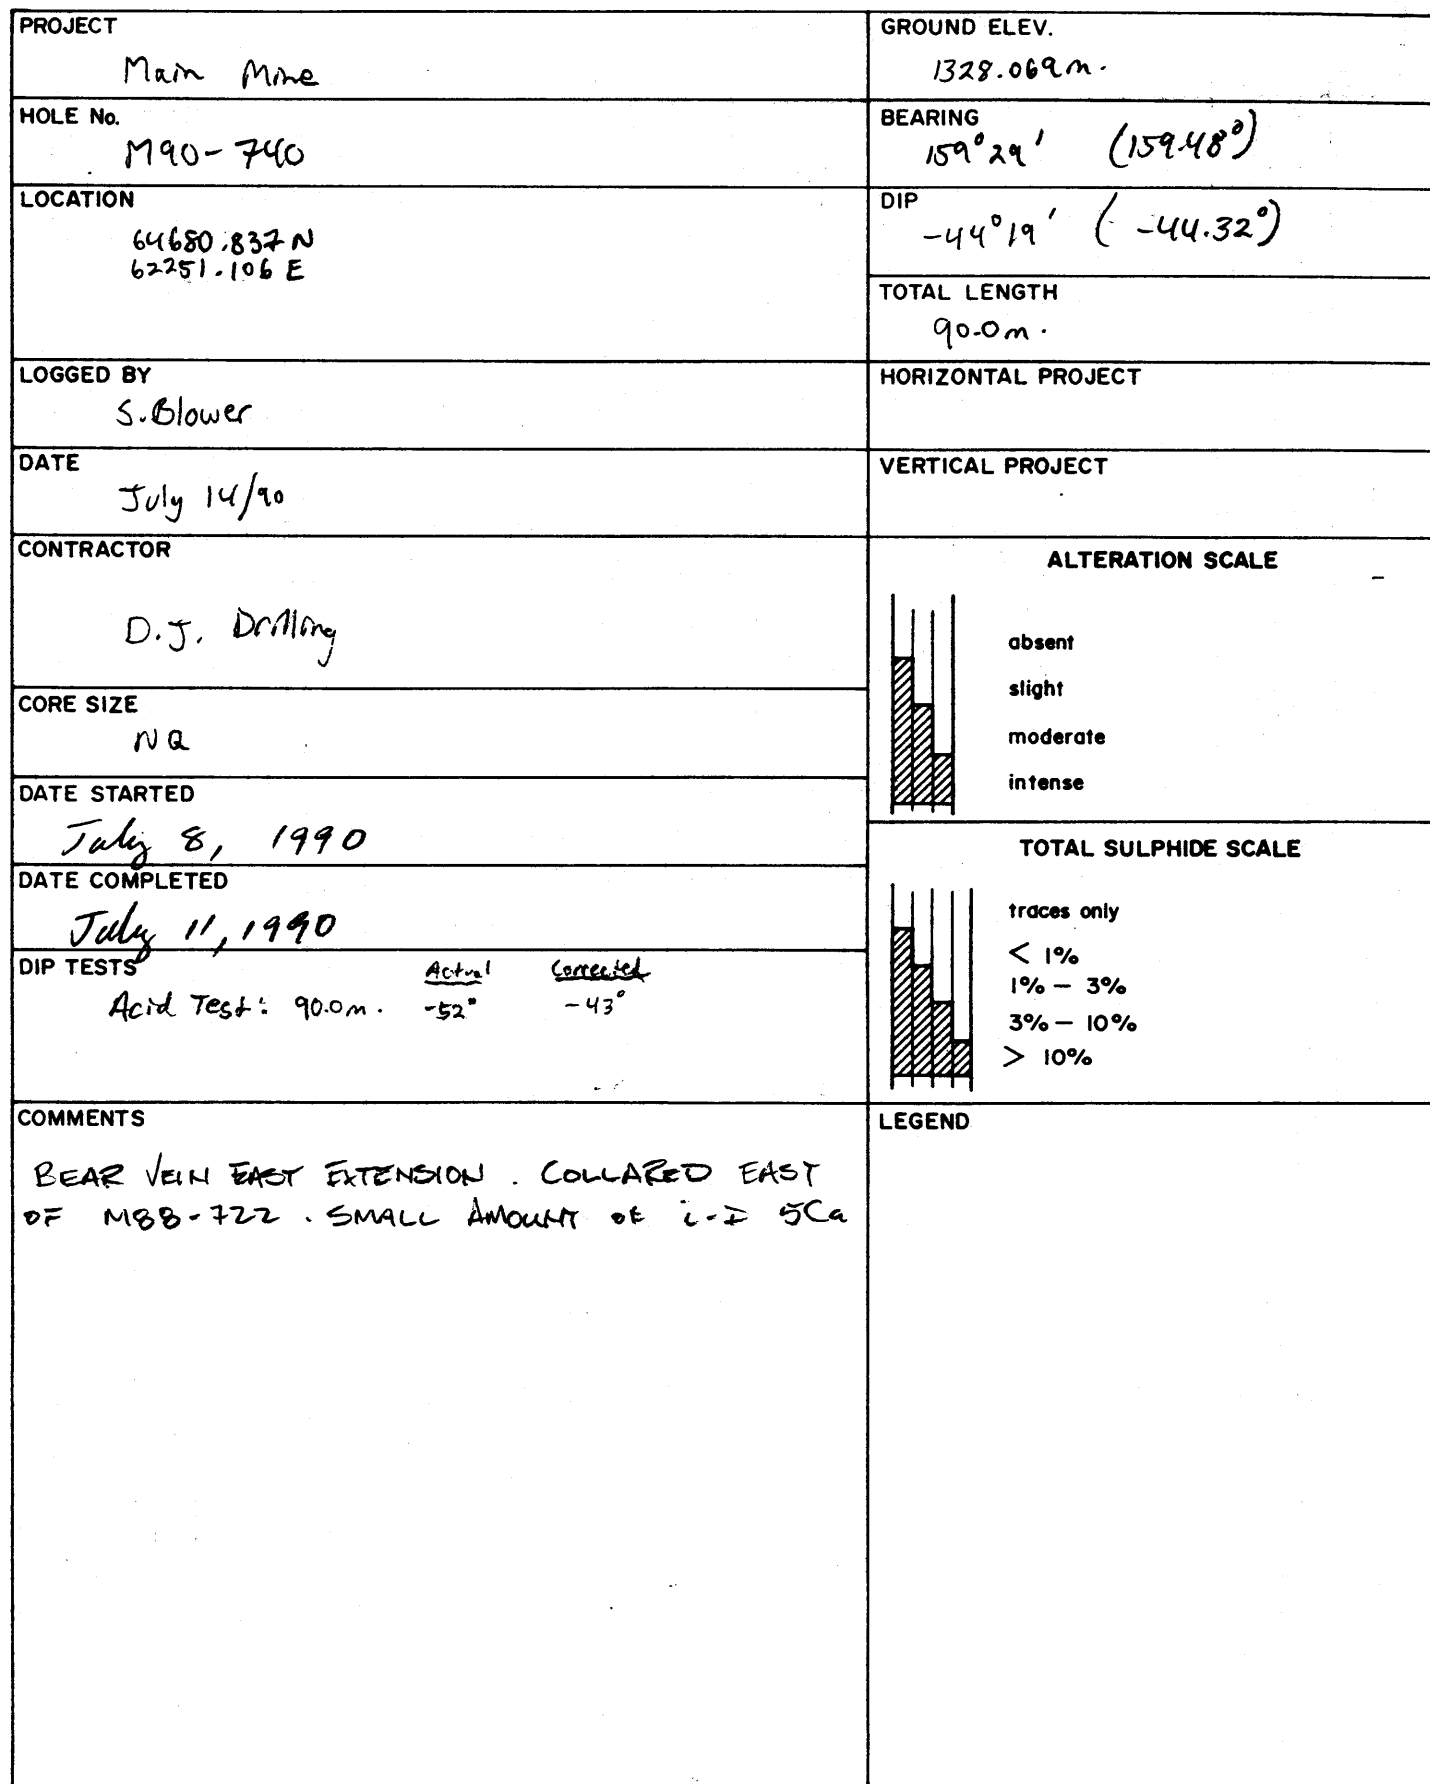 PROJECT
Main Mine
HOLE No.
M90-740
LOCATION
64680.837 N
62251.106 E
LOGGED BY
S. Blower
DATE
July 14/90
CONTRACTOR
D.J. Drilling
CORE SIZE
NQ
DATE STARTED
July 8, 1990
DATE COMPLETED
July 11, 1990
DIP TESTS
Actual Corrected
Acid Test: 90.0m. -52° -43°
COMMENTS
BEAR VEIN EAST EXTENSION. COLLARED EAST
OF M88-722. SMALL AMOUNT OF i-I 5Ca
GROUND ELEV.
1328.069m.
BEARING
159°29' (159.48°)
DIP
-44°19' (-44.32°)
TOTAL LENGTH
90.0m.
HORIZONTAL PROJECT
VERTICAL PROJECT
ALTERATION SCALE
absent
slight
moderate
intense
TOTAL SULPHIDE SCALE
traces only
< 1%
1% – 3%
3% – 10%
> 10%
LEGEND